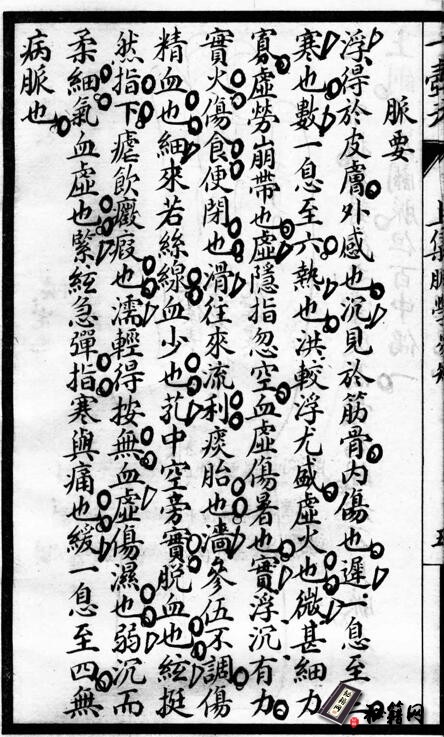 脈要
浮得於皮膚外感也沉見於筋骨內傷也遲一息至
寒也數一息至六熱也洪較浮尤盛虛火也微甚細力
寡虛勞崩帶也虛隱指忽空血虛傷暑也實浮沉有力
實火傷食便閉也滑往來流利痰胎也濇參伍不調傷
精血也細來若絲線血少也芤中空旁實脫血也絃挺
然指下瘧飲癥瘕也濡輕得按無血虛傷濕也弱沉而
柔細氣血虛也緊絃急彈指寒與痛也緩一息至四無
病脈也
籍网